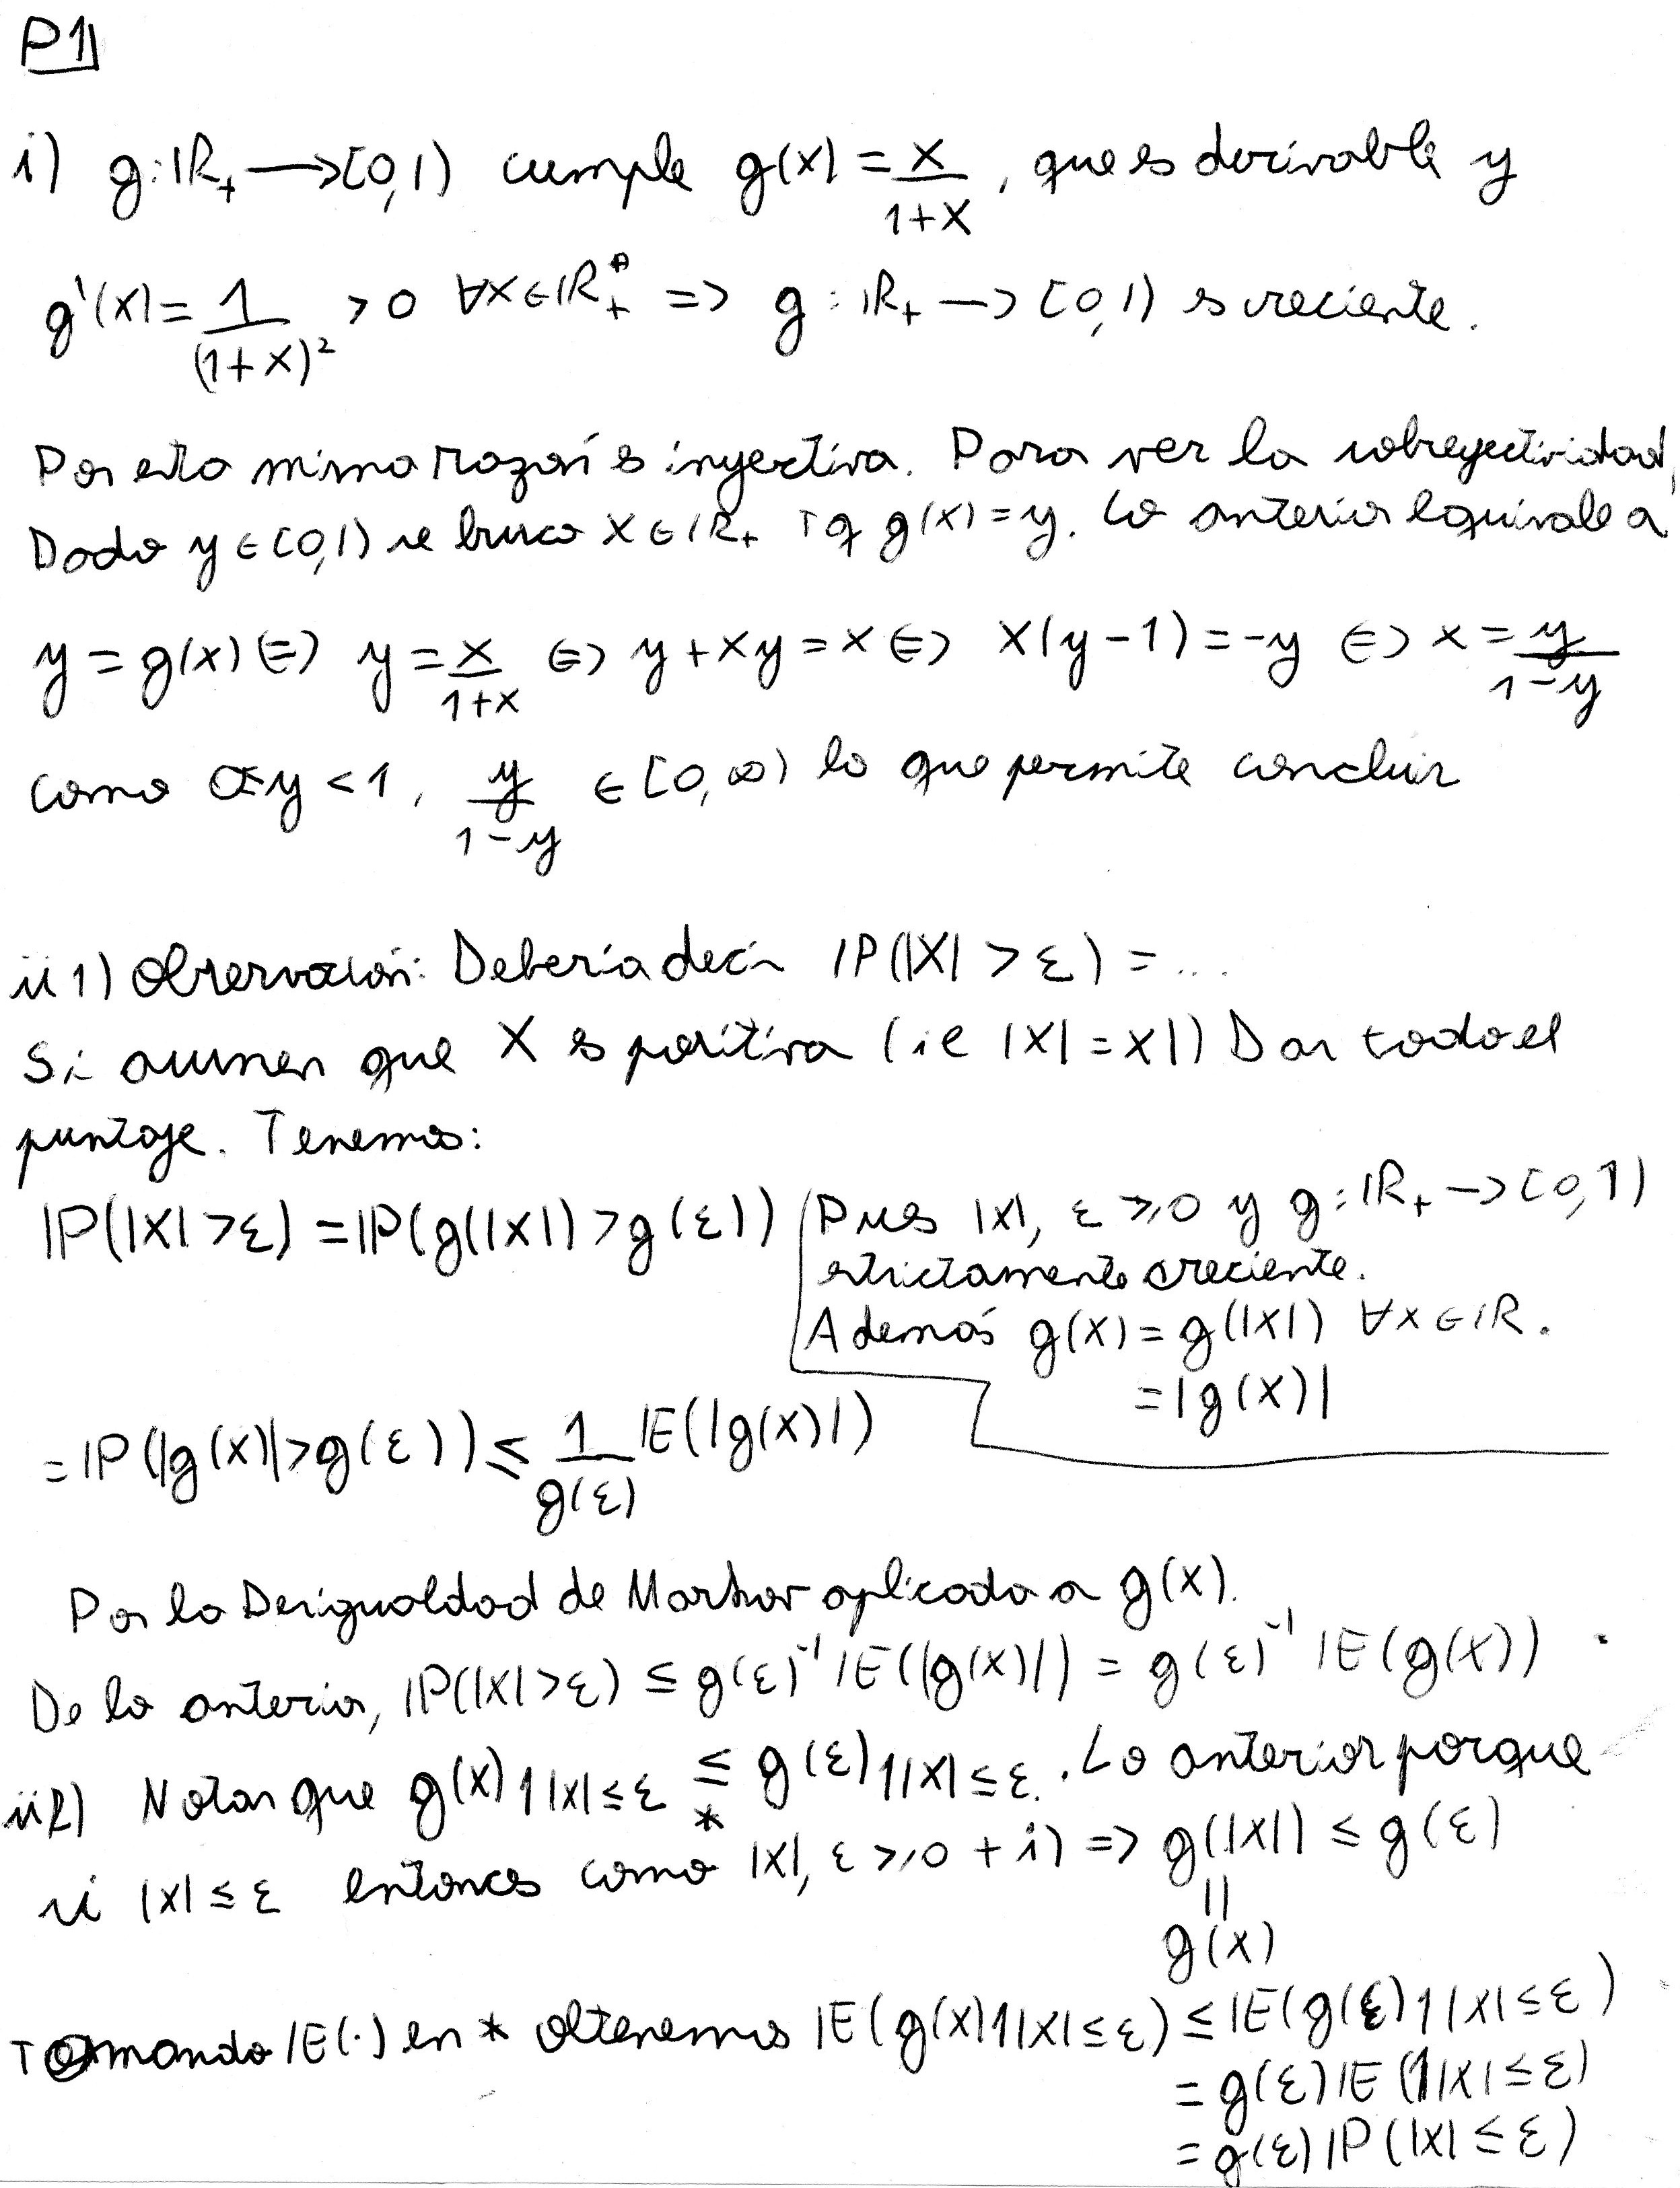 P1
i) g: ℝ₊ → [0,1) cumple g(x) = x/(1+x), que es derivable y
g'(x) = 1/(1+x)² > 0 ∀x∈ℝ₊* => g: ℝ₊ → [0,1) es creciente.
Por esta misma razón es inyectiva. Para ver la sobreyectividad,
Dado y ∈ [0,1) se busca x ∈ ℝ₊ tq g(x) = y. Lo anterior equivale a
y = g(x) ⇔ y = x/(1+x) ⇔ y + xy = x ⇔ x(y-1) = -y ⇔ x = y/(1-y)
como 0≤y < 1, y/(1-y) ∈ [0,∞) lo que permite concluir
ii 1) Observación: Debería decir ℙ(|X| > ε) = ...
Si asumen que X es positiva (ie |X| = X|) Dar todo el
puntaje. Tenemos:
ℙ(|X| > ε) = ℙ(g(|X|) > g(ε))
Pues |X|, ε ≥ 0 y g: ℝ₊ → [0,1)
estrictamente creciente.
Además g(x) = g(|x|) ∀x∈ℝ.
= |g(x)|
= ℙ(|g(x)| > g(ε)) ≤ 1/g(ε) 𝔼(|g(x)|)
Por la Desigualdad de Markov aplicada a g(x).
De lo anterior, ℙ(|X| > ε) ≤ g(ε)⁻¹ 𝔼(|g(x)|) = g(ε)⁻¹ 𝔼(g(X)).
ii2) Notar que g(x) 1|x|≤ε ≤* g(ε) 1|x|≤ε. Lo anterior porque
si |x| ≤ ε entonces como |x|, ε ≥ 0 + i) => g(|x|) ≤ g(ε)
||
g(x)
Tomando 𝔼(·) en * obtenemos 𝔼(g(x) 1|x|≤ε) ≤ 𝔼(g(ε) 1|x|≤ε)
= g(ε) 𝔼(1|x|≤ε)
= g(ε) ℙ(|x| ≤ ε)